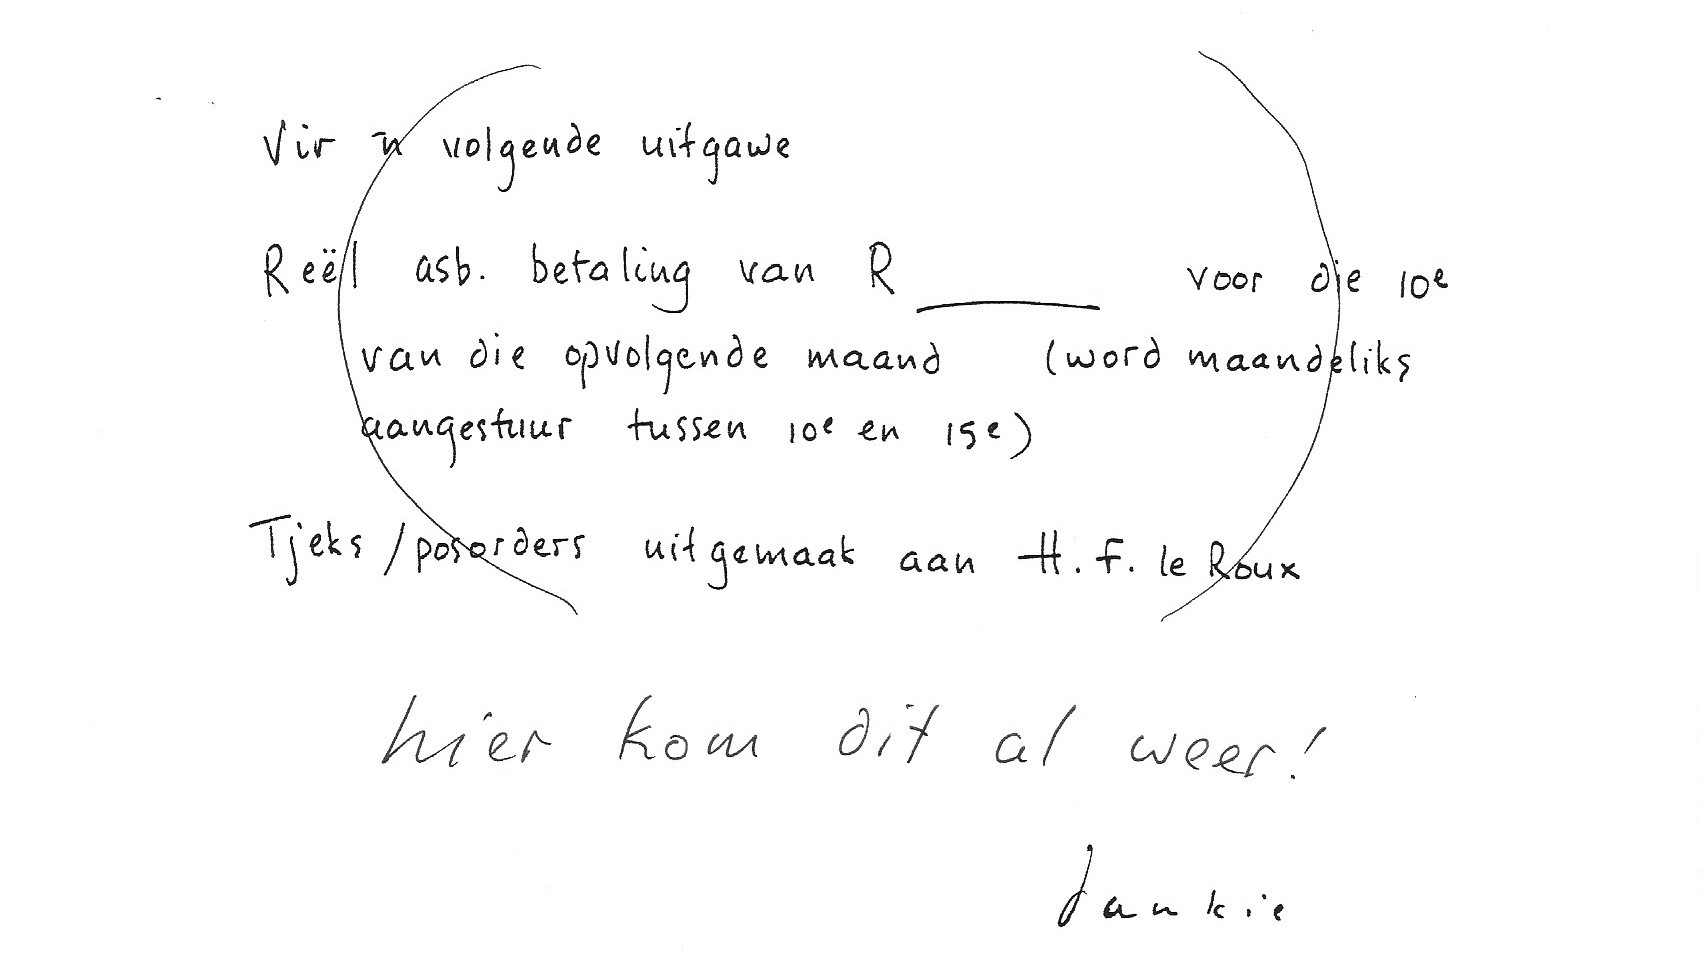 Vir 'n volgende uitgawe
Reël asb. betaling van R ______ voor die 10e
van die opvolgende maand (word maandeliks
aangestuur tussen 10e en 15e)
Tjeks / posorders uitgemaak aan H. F. le Roux
hier kom dit al weer!
Jankie